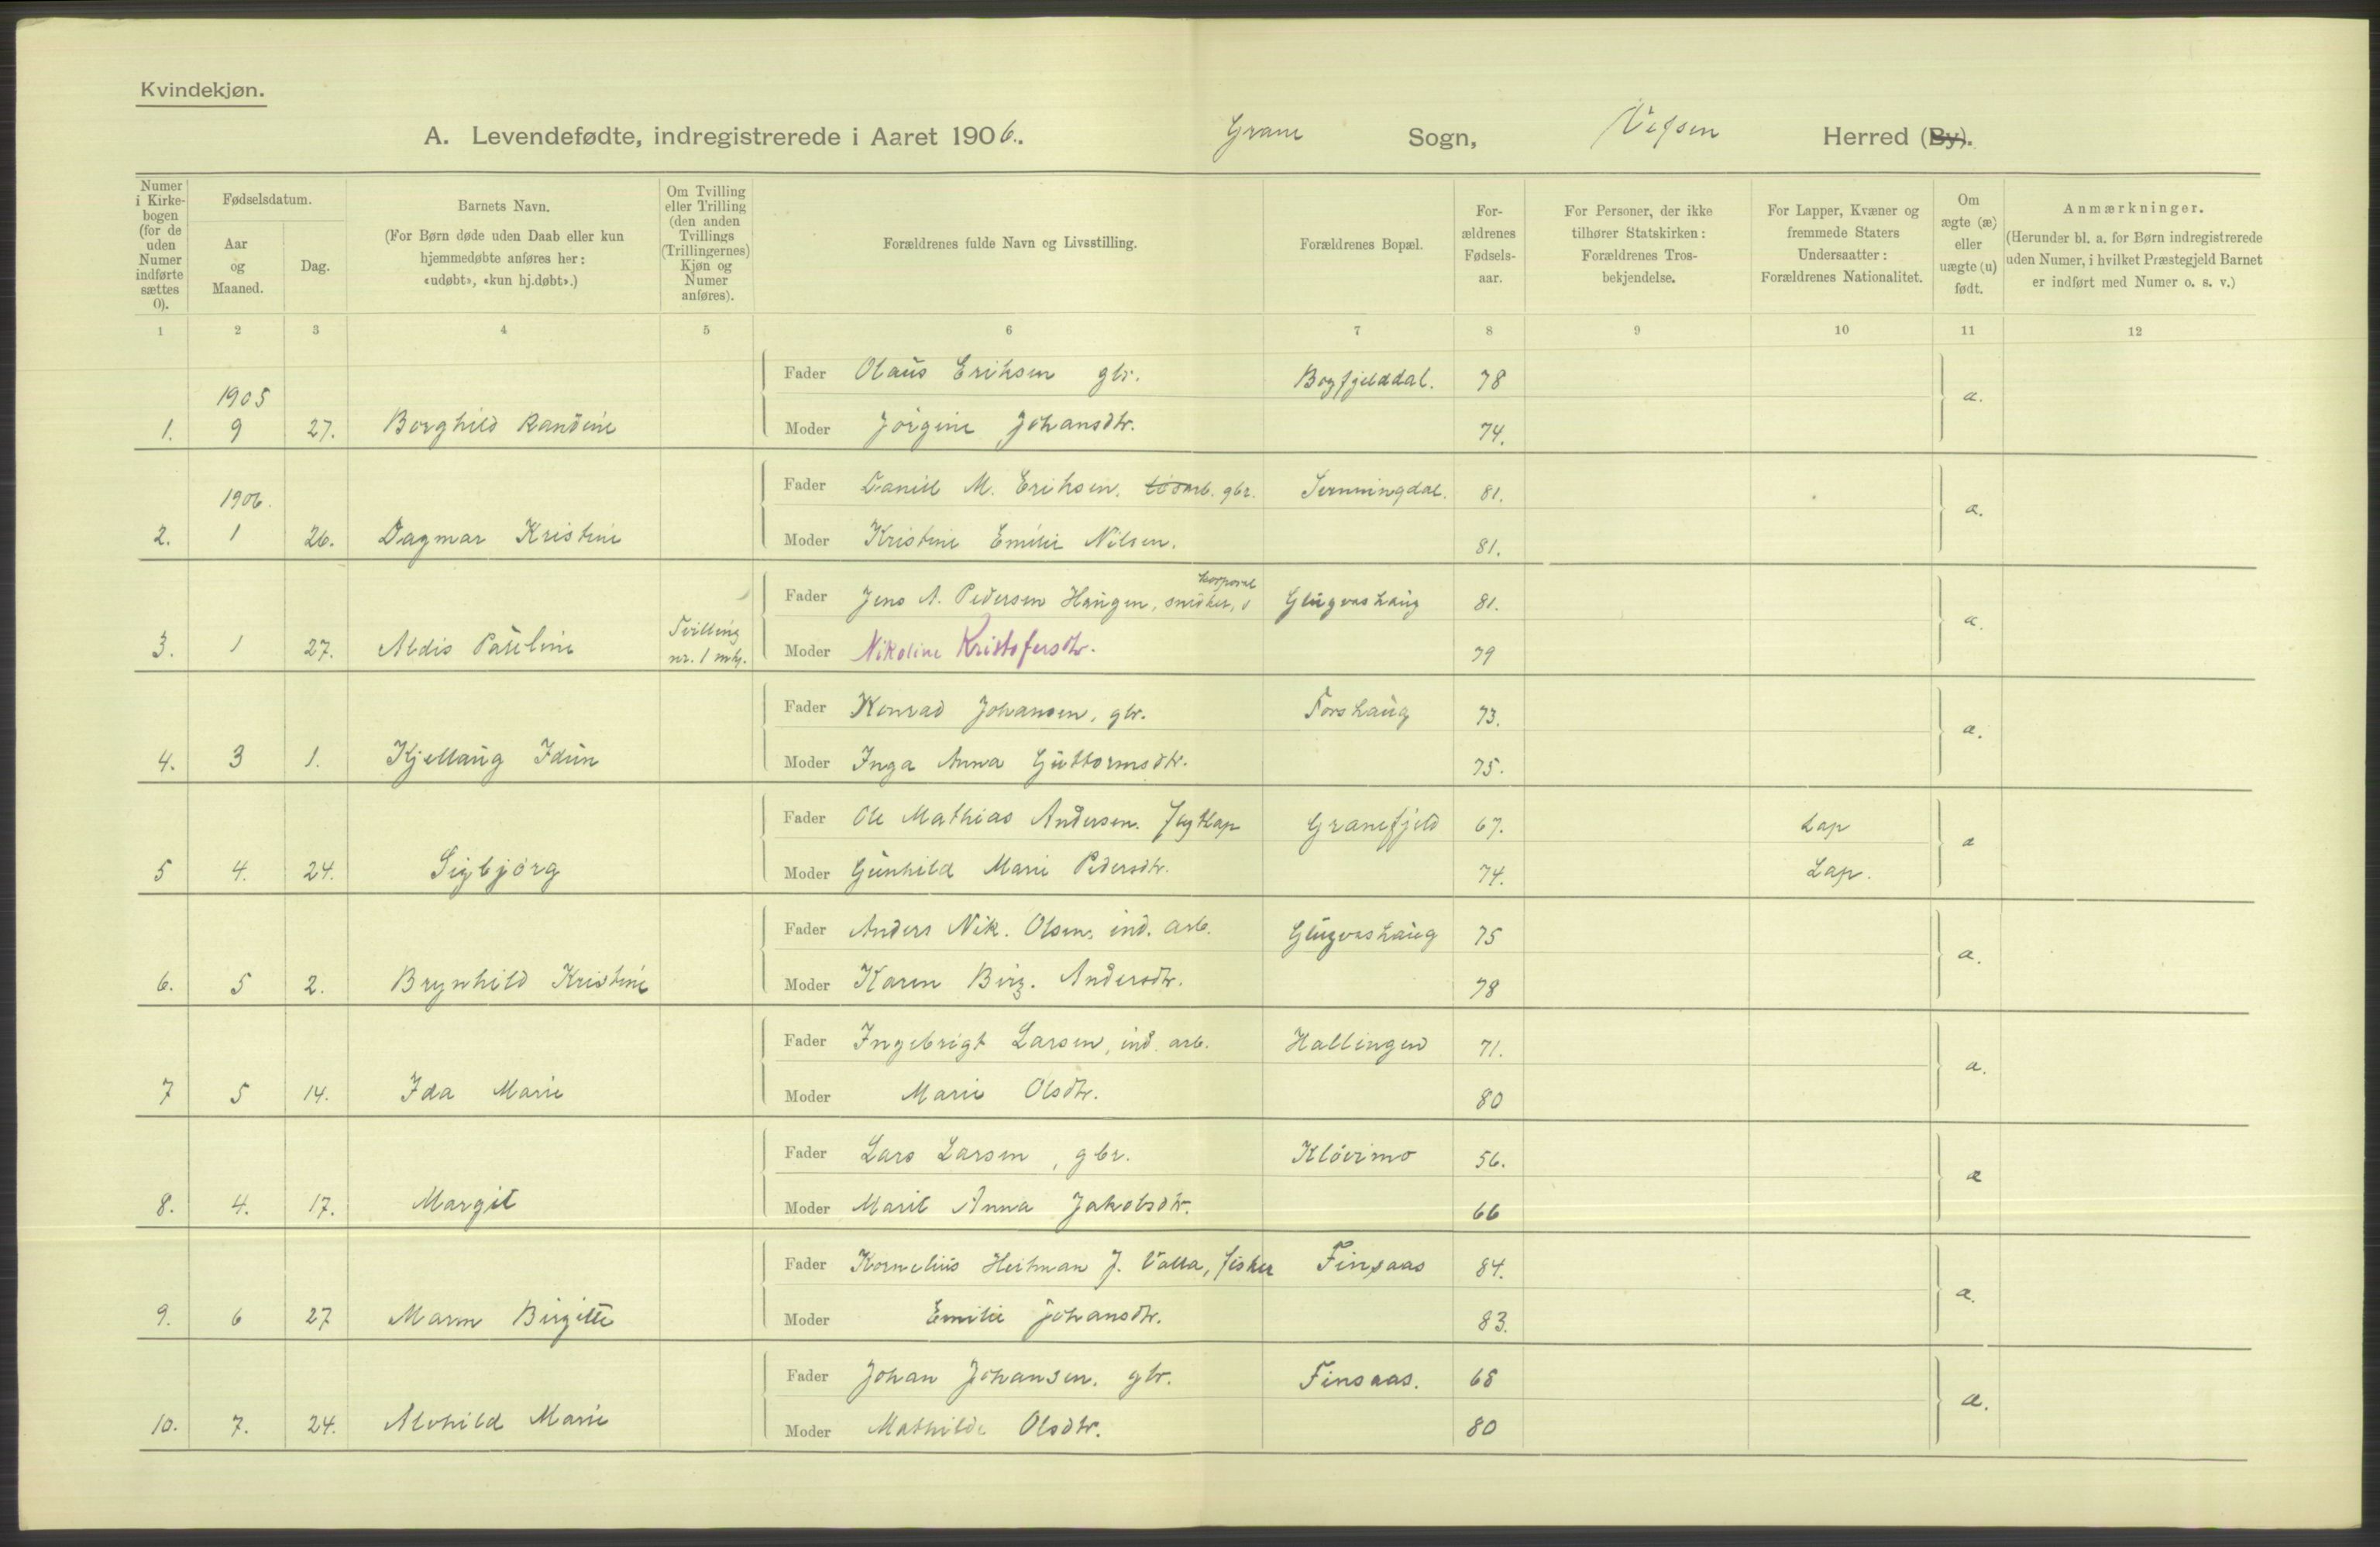 Kvindekjøn.
A. Levendefødte, indregistrerede i Aaret 1906. Grane Sogn, Vefsen Herred (By).
Numer i Kirkebogen (for de uden Numer indførte sættes 0).
Fødselsdatum.
Aar og Maaned.
Dag.
Barnets Navn.
(For Børn døde uden Daab eller kun hjemmedøbte anføres her: «udøbt», «kun hj.døbt».)
Om Tvilling eller Trilling (den anden Tvillings (Trillingernes) Kjøn og Numer anføres).
Forældrenes fulde Navn og Livsstilling.
Forældrenes Bopæl.
Forældrenes Fødselsaar.
For Personer, der ikke tilhører Statskirken: Forældrenes Trosbekjendelse.
For Lapper, Kvæner og fremmede Staters Undersaatter: Forældrenes Nationalitet.
Om ægte (æ) eller uægte (u) født.
Anmærkninger.
(Herunder bl. a. for Børn indregistrerede uden Numer, i hvilket Præstegjeld Barnet er indført med Numer o. s. v.)
1 2 3 4 5 6 7 8 9 10 11 12
Fader Olaus Eriksen gbr. Bogfjelddal. 78
1905 æ.
1. 9 27. Borghild Randine Moder Jørgine Johansdtr. 74.
Fader Daniel M. Eriksen, gbr. 81.
1906. æ.
2. 1 26. Dagmar Kristine Moder Kristine Emilie Nilsen. 81.
Fader Jens A. Pedersen Haugen, snedker, korporal Glugvashaug 81.
æ.
3. 1 27. Aldis Pauline Tvilling nr. 1 mk. Moder Nikoline Kristofersdtr. 79
Fader Konrad Johansen, gbr. Forshaug 73.
æ.
4. 3 1. Kjellaug Idun Moder Inga Anna Guttormsdtr. 75.
Fader Ole Mathias Andersen. flytlap Granefjeld 67. Lap
æ
5 4. 24. Sigbjørg Moder Gunhild Marie Pedersdtr. 74. Lap.
Fader Anders Nik. Olsen, ind. arb. Glugvashaug 75
æ.
6. 5 2. Brynhild Kristine Moder Karen Birg. Andersdtr. 78
Fader Ingebrigt Larsen, ind. arb. Hallingen 71.
æ.
7 5 14. Ida Marie Moder Marie Olsdtr. 80
Fader Lars Larsen, gbr. Kløvimo 56.
æ
8. 4. 17. Margit Moder Marit Anna Jakobsdtr. 66
Fader Kornelius Heitman J. Valla, fisker Finsaas 84.
æ.
9. 6 27 Maren Birgitte Moder Emilie Johansdtr. 83.
Fader Johan Johansen. gbr. Finsaas. 68
æ.
10. 7. 24. Alvhild Marie Moder Mathilde Olsdtr. 80